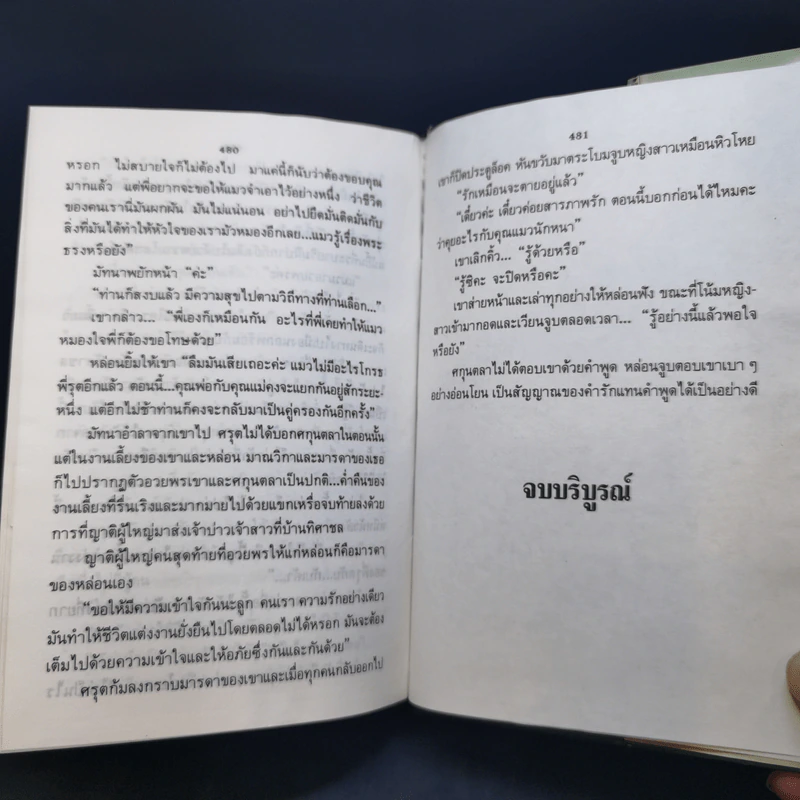 480
หรอก ไม่สบายใจก็ไม่ต้องไป มาแค่นี้ก็นับว่าต้องขอบคุณ
มากแล้ว แต่พี่อยากจะขอให้แมวจำเอาไว้อย่างหนึ่ง ว่าชีวิต
ของคนเรานี่มันผกผัน มันไม่แน่นอน อย่าไปยึดมั่นติดมั่นกับ
สิ่งที่มันได้ทำให้หัวใจของเรามัวหมองอีกเลย...แมวรู้เรื่องพระ
ธรงหรือยัง”
มัทนาพยักหน้า “ค่ะ”
“ท่านก็สงบแล้ว มีความสุขไปตามวิถีทางที่ท่านเลือก...”
เขากล่าว... “พี่เองก็เหมือนกัน อะไรที่พี่เคยทำให้แมว
หมองใจพี่ก็ต้องขอโทษด้วย”
หล่อนยิ้มให้เขา “ลืมมันเสียเถอะค่ะ แมวไม่มีอะไรโกรธ
พี่รุตอีกแล้ว ตอนนี้...คุณพ่อกับคุณแม่คงจะแยกกันอยู่สักระยะ-
หนึ่ง แต่อีกไม่ช้าท่านก็คงจะกลับมาเป็นคู่ครองกันอีกครั้ง”
มัทนาอำลาจากเขาไป ศรุตไม่ได้บอกศกุนตลาในตอนนั้น
แต่ในงานเลี้ยงของเขาและหล่อน มาณวิกาและมารดาของเธอ
ก็ไปปรากฏตัวอวยพรเขาและศกุนตลาเป็นปกติ...ค่ำคืนของ
งานเลี้ยงที่รื่นเริงและมากมายไปด้วยแขกเหรื่อจบท้ายลงด้วย
การที่ญาติผู้ใหญ่มาส่งเจ้าบ่าวเจ้าสาวที่บ้านทิศาชล
ญาติผู้ใหญ่คนสุดท้ายที่อวยพรให้แก่หล่อนก็คือมารดา
ของหล่อนเอง
“ขอให้มีความเข้าใจกันนะลูก คนเรา ความรักอย่างเดียว
มันทำให้ชีวิตแต่งงานยั่งยืนไปโดยตลอดไม่ได้หรอก มันจะต้อง
เต็มไปด้วยความเข้าใจและให้อภัยซึ่งกันและกันด้วย”
ศรุตก้มลงกราบมารดาของเขาและเมื่อทุกคนกลับออกไป
481
เขาก็ปิดประตูล็อค หันขวับมาตระโบมจูบหญิงสาวเหมือนหิวโหย
“รักเหมือนจะตายอยู่แล้ว”
“เดี๋ยวค่ะ เดี๋ยวค่อยสารภาพรัก ตอนนี้บอกก่อนได้ไหมคะ
ว่าคุยอะไรกับคุณแมวนักหนา”
เขาเลิกคิ้ว... “รู้ด้วยหรือ”
“รู้ซิคะ จะปิดหรือคะ”
เขาส่ายหน้าและเล่าทุกอย่างให้หล่อนฟัง ขณะที่โน้มหญิง-
สาวเข้ามากอดและเวียนจูบตลอดเวลา... “รู้อย่างนี้แล้วพอใจ
หรือยัง”
ศกุนตลาไม่ได้ตอบเขาด้วยคำพูด หล่อนจูบตอบเขาเบา ๆ
อย่างอ่อนโยน เป็นสัญญาณของคำรักแทนคำพูดได้เป็นอย่างดี
จบบริบูรณ์